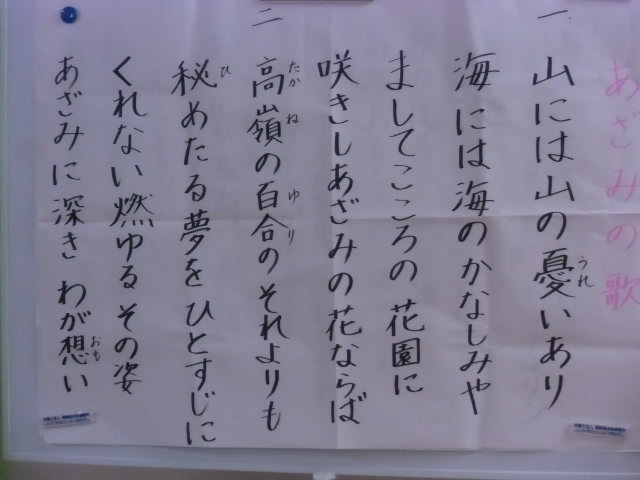 あざみの歌
一
山には山の憂いあり
うれ
海には海のかなしみや
ましてこころの花園に
咲きしあざみの花ならば
二
高嶺の百合のそれよりも
たかね
ゆり
秘めたる夢をひとすじに
ひ
くれない燃ゆるその姿
あざみに深きわが想い
おも